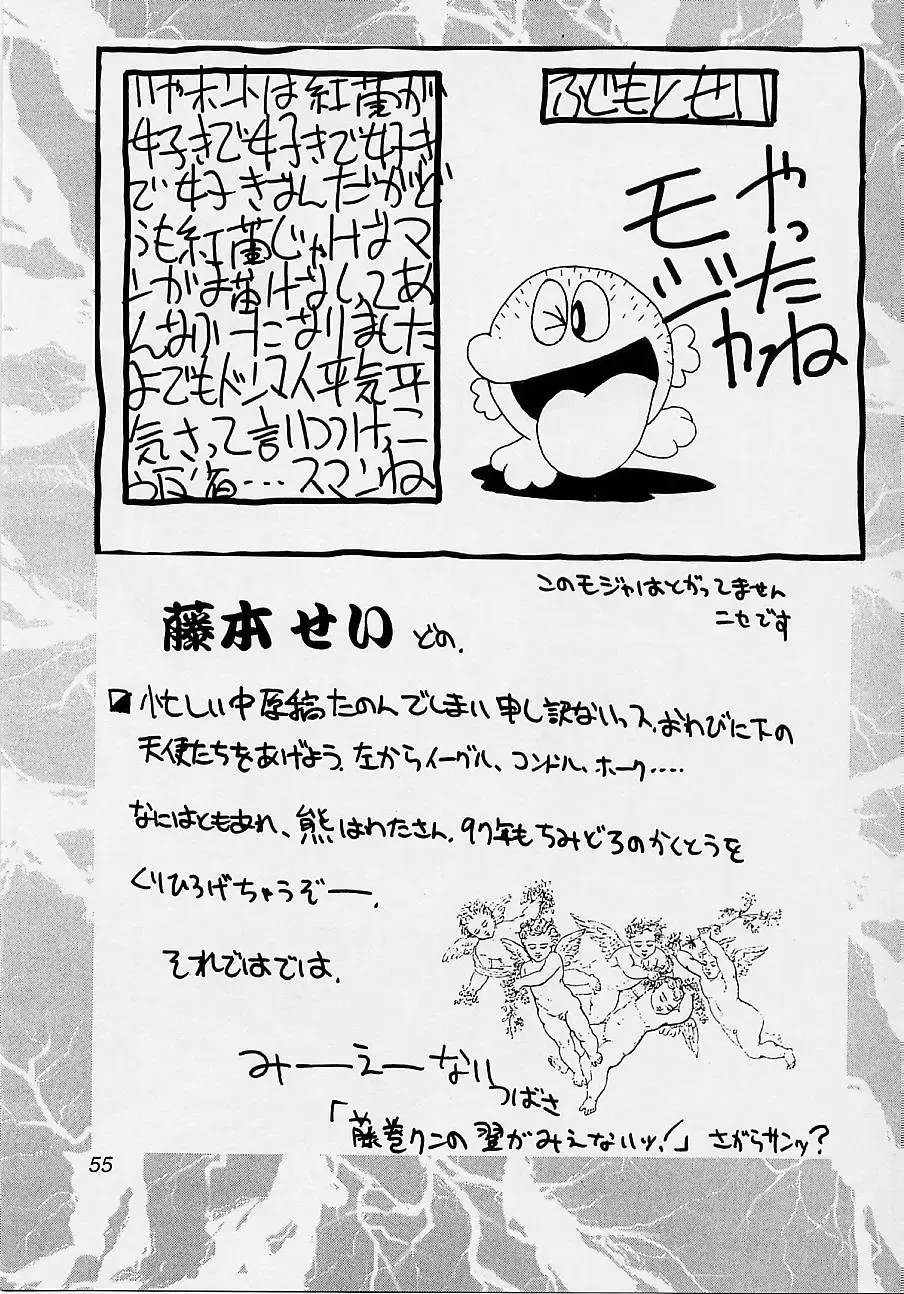 いやホントは紅蘭が
好きで好きで好き
で好きなんだがど
うも紅蘭じゃげばマ
ンがま蘭げなしってあ
んなかーたになりました
よでもドンマイ平気平
気さって言いつつけっこ
う反省…スマンね
ふじもとせい
やったね
モジャ
このモジャはとがってません
ニセです
藤本せい どの.
忙しい中原稿たのんでしまい申し訳ないっス.おわびに下の
天使たちをあげよう.左からイーグル、コンドル、ホーク‥‥
なにはともあれ、熊はわたさん.97年もちみどろのかくとうを
くりひろげちゃうぞ――.
それではでは.
みーえーない
つばさ
「藤巻クンの翼がみえないッ!」さがらサンッ?
55